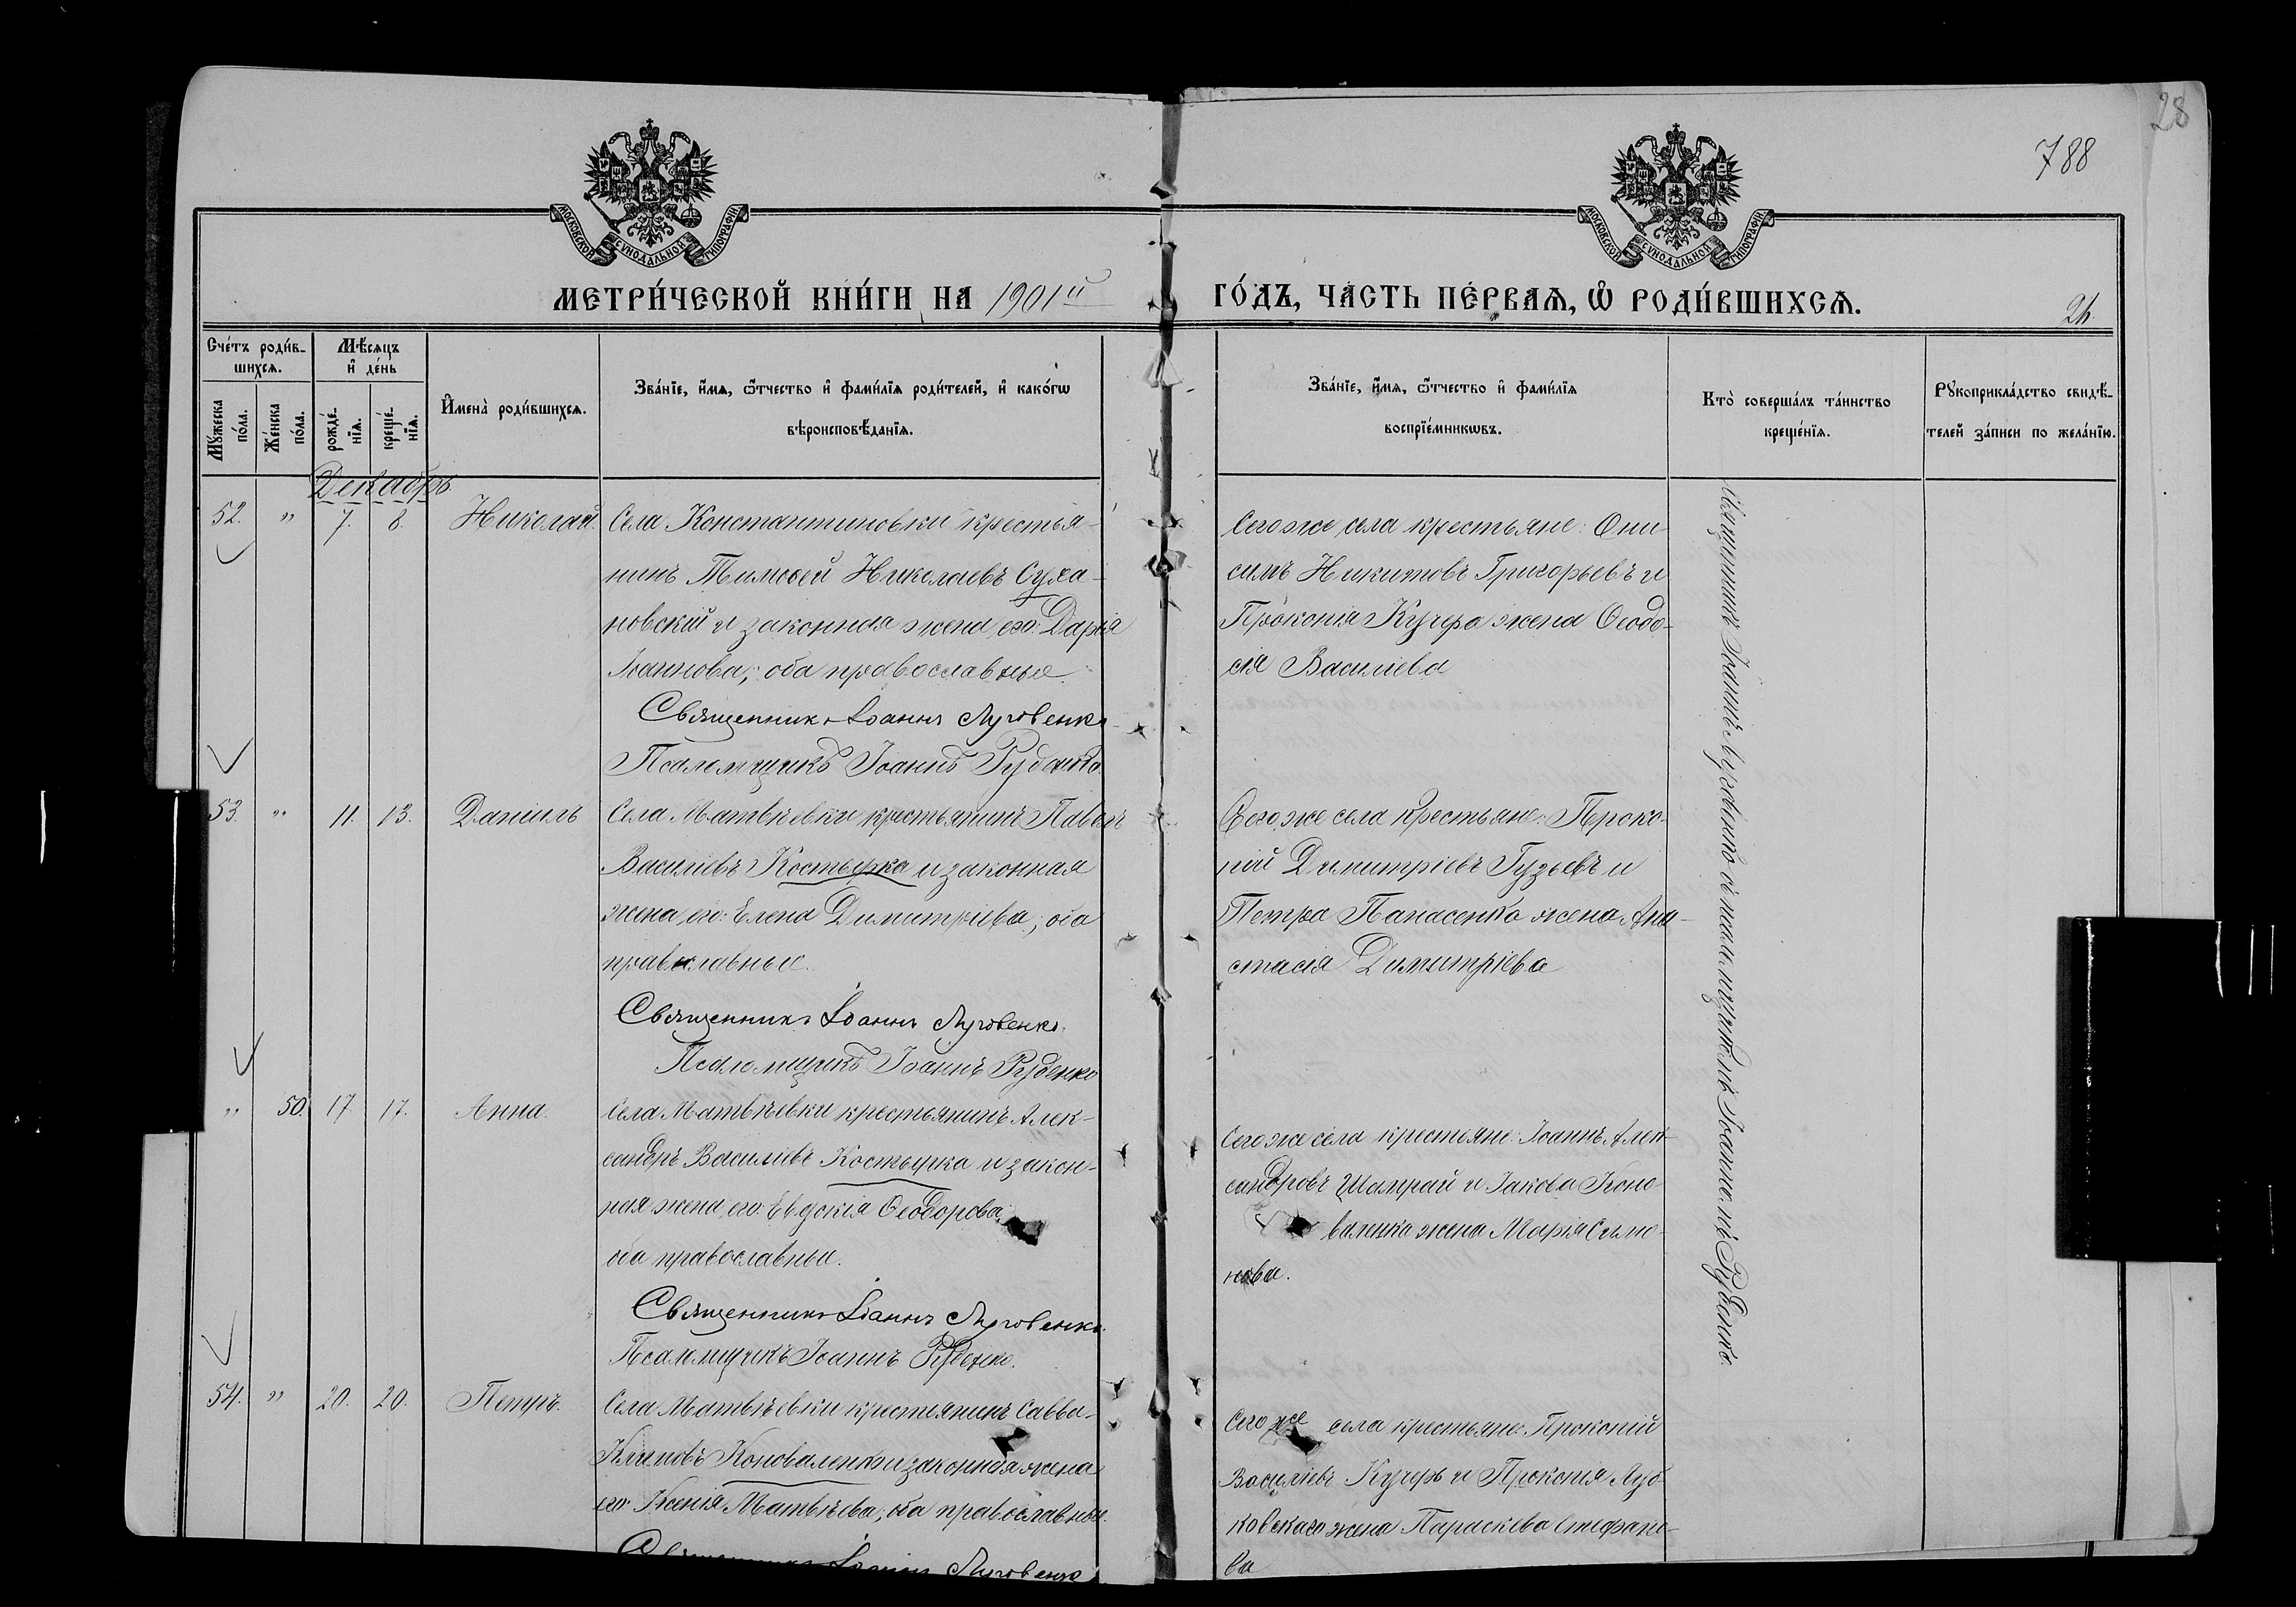 28
788
МОСКОВСКОЙ СѴНОДАЛЬНОЙ ТИПОГРАФІИ
МОСКОВСКОЙ СѴНОДАЛЬНОЙ ТИПОГРАФІИ
МЕТРИ́ЧЕСКОЙ КНИ́ГИ НА 1901й ГО́ДЪ, ЧА́СТЬ ПЕ́РВАѦ, Ѡ РОДИ́ВШИХСѦ.
Сче́тъ роди́в-
шихсѧ.
Мѣ́сѧцъ
и҆ де́нь
Мꙋ́жеска по́ла.
Же́нска по́ла.
рожде́-нїѧ.
креще́-нїѧ.
И҆мена̀ роди́вшихсѧ.
Зва́нїе, и҆́мѧ, ѻ҆́тчество и҆ фами́лїѧ роди́телей, и҆ како́гѡ
вѣроисповѣ́данїѧ.
Зва́нїе, и҆́мѧ, ѻ҆́тчество и҆ фами́лїѧ
воспрїе́мникѡвъ.
Кто̀ соверша́лъ та́инство
креще́нїѧ.
Рꙋкоприкла́дство свидѣ́-
телей за́писи по жела́нїю.
Декабрь
52. " 7. 8. Николай.
Села Константиновки крестья-
нинъ Тимоѳей Николаевъ Суха-
новскій и законная жена его: Дарія
Іоаннова; оба православные.
Священникъ Іоаннъ Луговенко
Псаломщикъ Іоаннъ Руденко.
Сего же села крестьяне: Они-
симъ Никитовъ Григорьевъ и
Прокопія Кучера жена Ѳеодо-
сія Василіева
53. " 11. 13. Даніилъ
Села Матвѣевки крестьянинъ Павелъ
Василіевъ Костырка и законная
жена его: Елена Димитріева; оба
православные.
Священникъ Іоаннъ Луговенко.
Псаломщикъ Іоаннъ Руденко
Сего же села крестьяне: Проко-
пій Димитріевъ Гузьевъ и
Петра Панасенка жена Ана-
стасія Димитріева
" 50. 17. 17. Анна.
Села Матвѣевки крестьянинъ Алек-
сандръ Василіевъ Костырка и закон-
ная жена его: Евдокія Ѳеодорова;
оба православные.
Священникъ Іоаннъ Луговенко.
Псаломщикъ Іоаннъ Руденко.
Сего же села крестьяне: Іоаннъ Алек-
сандровъ Шамрай и Іакова Коно-
валенка жена Марія Симо-
нова.
54. " 20. 20. Петръ.
Села Матвѣевки крестьянинъ Савва
Коноваленко и законная жена
его Ксенія Матвѣева; оба православные.
Священникъ Іоаннъ Луговенко
Сего же села крестьяне: Прокопій
Василіевъ Кучеръ и Прокопія Луб-
ковскаго жена Параскева Стефано-
ва
Священникъ Іоаннъ Луговенко съ псаломщикомъ Іоанномъ Руденко.